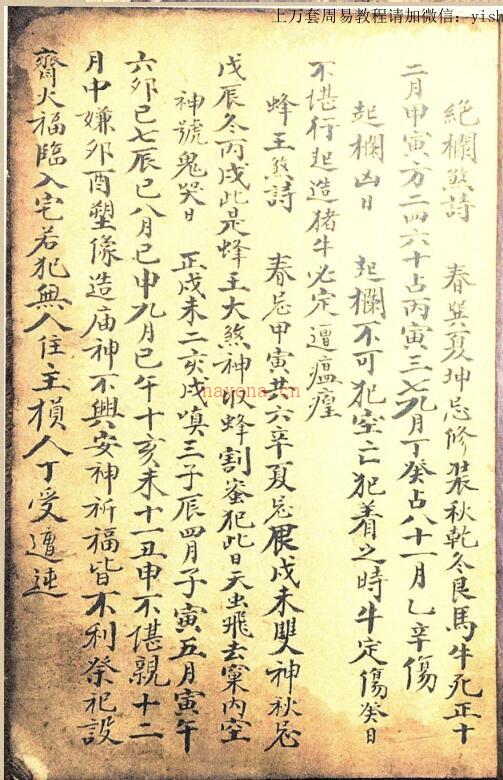 上万套周易教程请加微信：yish
絕欄煞詩　春巽夏坤忌修裝秋乾冬艮馬牛死正十
二月甲寅方二四六十占丙寅三七九月丁癸占八十一月乙辛傷
起欄凶日　起欄不可犯空亡犯着之時牛定傷癸日
不堪行起造猪牛必定遭瘟瘽
蜂王煞詩　春忌甲寅共六辛夏忌戊未雙神秋忌
戊辰冬丙戌此是蜂王大煞神收蜂割蜜犯此日天虫飛去窠內空
神號鬼哭日　正戌未二亥戌嗔三子辰四月子寅五月寅午
六卯巳七辰巳八月巳申九月巳午十亥未十一丑申不堪親十二
月中嫌卯酉塑像造庙神不興安神祈福皆不利祭祀設
齊火福臨入宅若犯無人住主損人丁受遭迍
nayona.cn